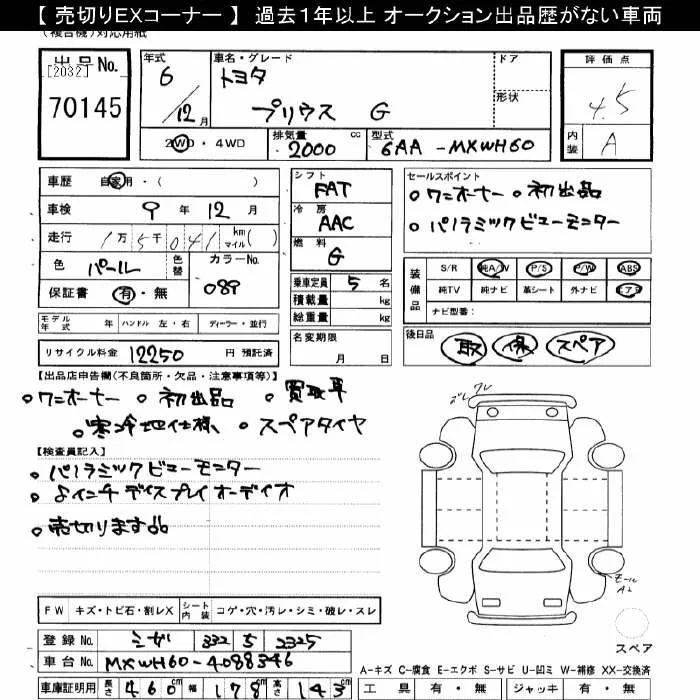 【 売切りEXコーナー 】 過去１年以上 オークション出品歴がない車両
(複合機)対応用紙
出品No.
[2032]
70145
年式
6
12月
車名・グレード
トヨタ
プリウス G
ドア
形状
評価点
4.5
内装
A
2WD・4WD
排気量
2000 cc
型式
6AA-MXWH60
車歴 自家用・( )
車検 9年12月
走行 1万5千041 km マイル( )
色 パール 色替
カラーNo. 089
保証書 有・無
シフト
FAT
冷房
AAC
燃料
G
乗車定員 5名
積載量 kg
総重量 kg
名変期限
月 日
セールスポイント
○ワンオーナー ○初出品
○パノラミックビューモニター
装備品
S/R 純A/W P/S P/W ABS
純TV 純ナビ 革シート 外ナビ エアB
ナビ型番:
モデル年式 年 ハンドル 左・右 ディーラー・並行
リサイクル料金 12250 円 預託済
後日品
取 保 スペア
【出品店申告欄(不良箇所・欠品・注意事項等)】
○ワンオーナー ○初出品 ○買取車
○寒冷地仕様 ○スペアタイヤ
【検査員記入】
○パノラミックビューモニター
○8インチディスプレイオーディオ
○売切ります品
FW キズ・トビ石・割レX
シート内装 コゲ・穴・汚レ・シミ・破レ・スレ
登録No. ミザ 332 ら 2325
車台No. MXWH60-4088346
車庫証明用 長さ 460cm 幅 178cm 高さ 143cm
スペア
A-キズ C-腐食 E-エクボ S-サビ U-凹ミ W-補修 XX-交換済
工具 有・無 ジャッキ 有・無